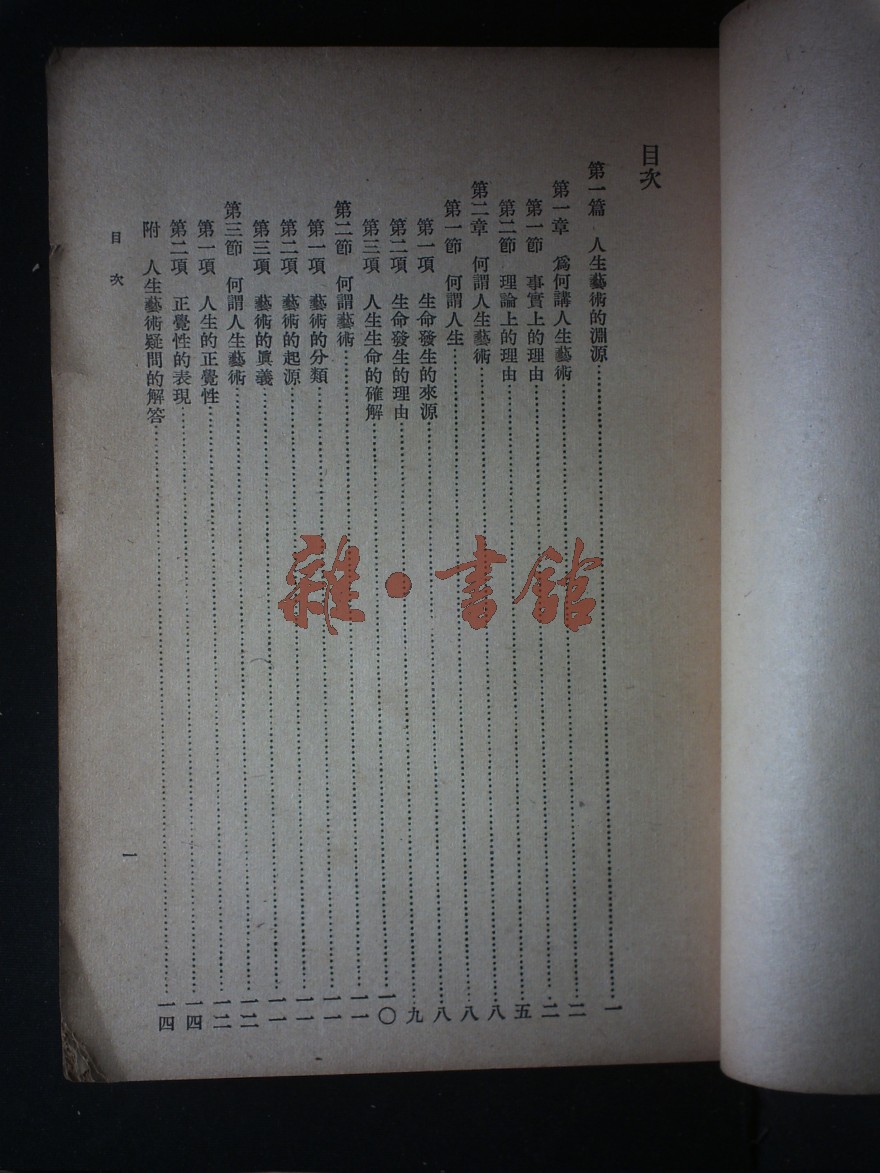 目次
第一篇 人生藝術的淵源……一
第一章 爲何講人生藝術……二
第一節 事實上的理由……二
第二節 理論上的理由……五
第二章 何謂人生藝術……八
第一節 何謂人生……八
第一項 生命發生的來源……八
第二項 生命發生的理由……九
第三項 人生生命的確解……一〇
第二節 何謂藝術……一一
第一項 藝術的分類……一一
第二項 藝術的起源……一一
第三項 藝術的眞義……一一
第三節 何謂人生藝術……一二
第一項 人生的正覺性……一二
第二項 正覺性的表現……一四
附 人生藝術疑問的解答……一四
目次
一
雜·書館